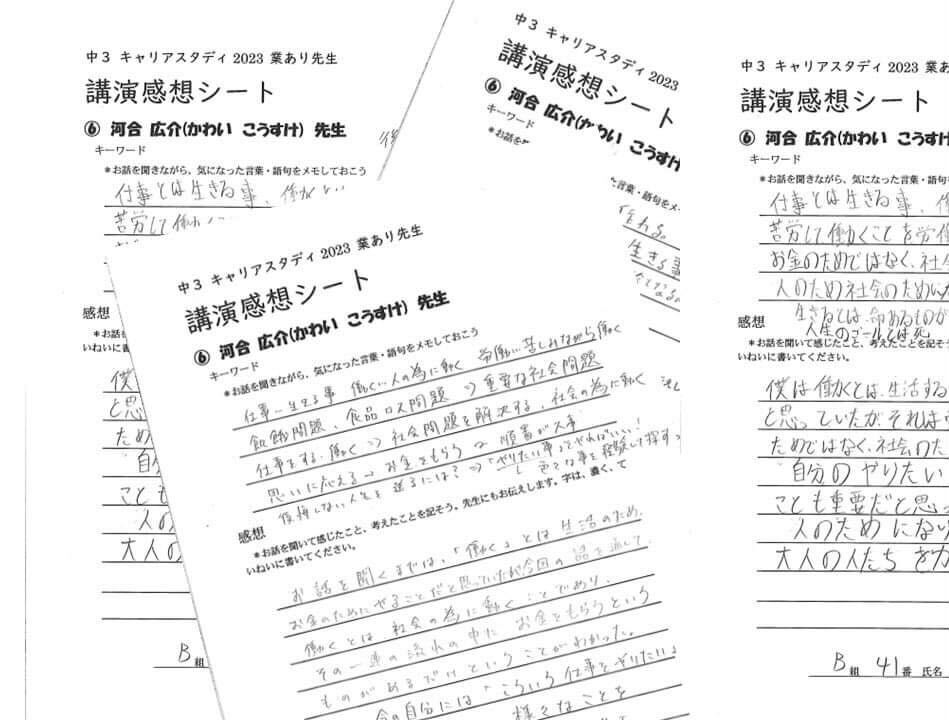 中3 キャリアスタディ 2023 業あり先生
講演感想シート
⑥ 河合 広介(かわい こうすけ) 先生
キーワード
*お話を聞きながら、気になった言葉・語句をメモしておこう
仕事とは生きる事、働く
苦労して働く
感想
*お話を
いねいに書
僕は
と思
ため
自分
ことも
人の
大人の
B組
中3 キャリアスタディ 2023
講演感想シート
⑥ 河合 広介(かわい こうすけ
キーワード
*お話を
言葉・語句をメ
生きる事
中3 キャリアスタディ 2023 業あり先生
講演感想シート
⑥ 河合 広介(かわい こうすけ) 先生
キーワード
*お話を聞きながら、気になった言葉・語句をメモしておこう
仕事=生きる事 働く…人の為に動く 労働…苦しみながら働く
飢餓問題、食品ロス問題 ⇒ 重要な社会問題
仕事をする、働く ⇒ 社会問題を解決する、社会の為に動く
思いに応える → お金をもらう 順番が大事
後悔しない人生を送るには? ⇒ 「やりたい事」をやればいい!
色々な事を経験して探す
感想
*お話を聞いて感じたこと、考えたことを記そう。先生にもお伝えします。字は、濃く、て
いねいに書いてください。
お話を聞くまでは、「働く」とは生活のため、
お金のためにやることだと思っていたが今回の話を通して、
働くとは、社会の為に動くことであり、
その一連の流れの中に お金をもらうという
ものがあるだけということがわかった。
今の自分には「こういう仕事をやりたい」
様々なことを
中3 キャリアスタディ 2023 業あ
講演感想シート
⑥ 河合 広介(かわい こうすけ
キーワード
*お話を聞きながら、気になった言葉・語句
仕事とは生きる事、
苦労して働くことを労働
お金のためではなく、社会
人のため社会のために
生きるとは、命あるものが
人生のゴールとは死
感想
*お話を聞いて感じたこと、考えたことを記そ
いねいに書いてください。
僕は働くとは、生活する
と思っていたが、それは
ためではなく、社会のた
自分のやりたい
ことも重要だと思
人のためにない
大人の人たち を
B組 41番 氏名